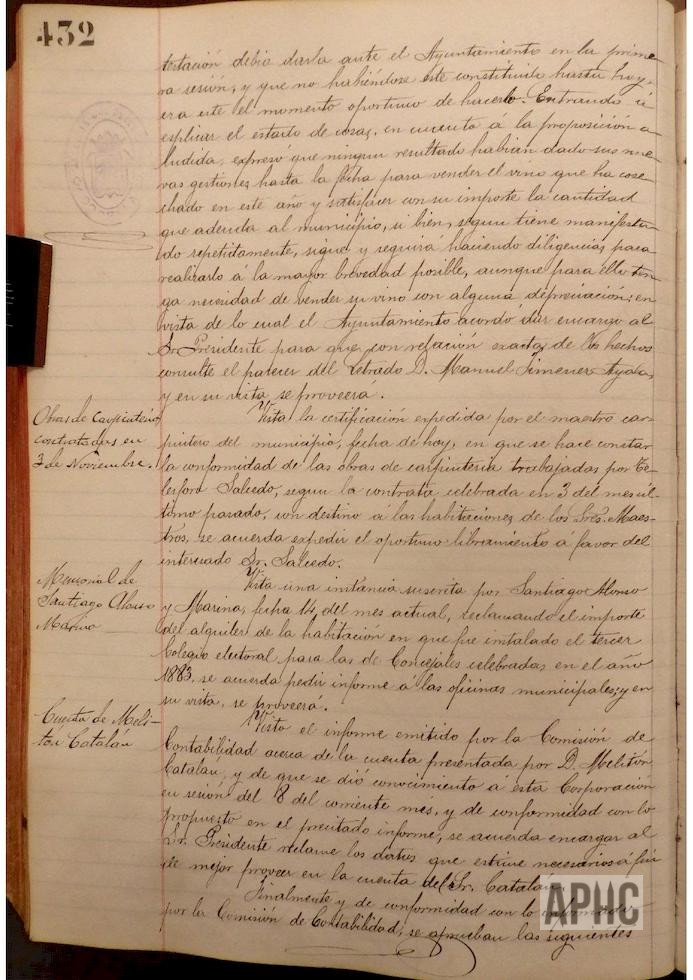 432
testación debia darla ante el Ayuntamiento en la prime-
ra sesión, y que no habiéndose este constituido hasta hoy,
era este el momento oportuno de hacerlo. Entrando á
esplicar el estado de cosas, en cuanto á la proposición a-
ludida, expresó que ningun resultado habian dado sus nue-
vas gestiones hasta la fecha para vender el vino que ha cose-
chado en este año y satisfacer con su importe la cantidad
que adeuda al municipio, si bien, segun tiene manifesta-
do repetidamente, sigue y seguirá haciendo diligencias para
realizarlo á la mayor brevedad posible, aunque para ello ten-
ga necesidad de vender su vino con alguna depreciación; en
vista de lo cual el Ayuntamiento acordó dar encargo al
Sr. Presidente para que, con relación exacta de los hechos
consulte el parecer del Letrado D. Manuel Jimenez Ayala,
y en su vista se proveerá.
Obras de Carpinteria
contratadas en
3 de Noviembre.
Vista la certificación expedida por el maestro car-
pintero del municipio, fecha de hoy, en que se hace constar
la conformidad de las obras de carpinteria trabajadas por Te-
lesforo Salcedo, segun la contrata celebrada en 3 del mes úl-
timo pasado, con destino á las habitaciones de los Sres. Maes-
tros, se acuerda expedir el oportuno libramiento á favor del
interesado Sr. Salcedo.
Memorial de
Santiago Alonso
Marina
Vista una instancia suscrita por Santiago Alonso
y Marina, fecha 14 del mes actual, reclamando el importe
del alquiler de la habitación en que fue instalado el tercer
Colegio electoral para las de Concejales celebradas en el año
1883, se acuerda pedir informe á las oficinas municipales; y en
su vista, se proveerá.
Cuenta de Meli-
ton Catalán
Visto el informe emitido por la Comisión de
Contabilidad acerca de la cuenta presentada por D. Melitón
Catalán, y de que se dió conocimiento á esta Corporación
en sesión del 8 del corriente mes, y de conformidad con lo
propuesto en el precitado informe, se acuerda encargar al
Sr. Presidente reclame los datos que estime necesarios á fin
de mejor proveer en la cuenta del Sr. Catalán.
Finalmente y de conformidad con lo informado
por la Comisión de Contabilidad, se aprueban las siguientes
APHC